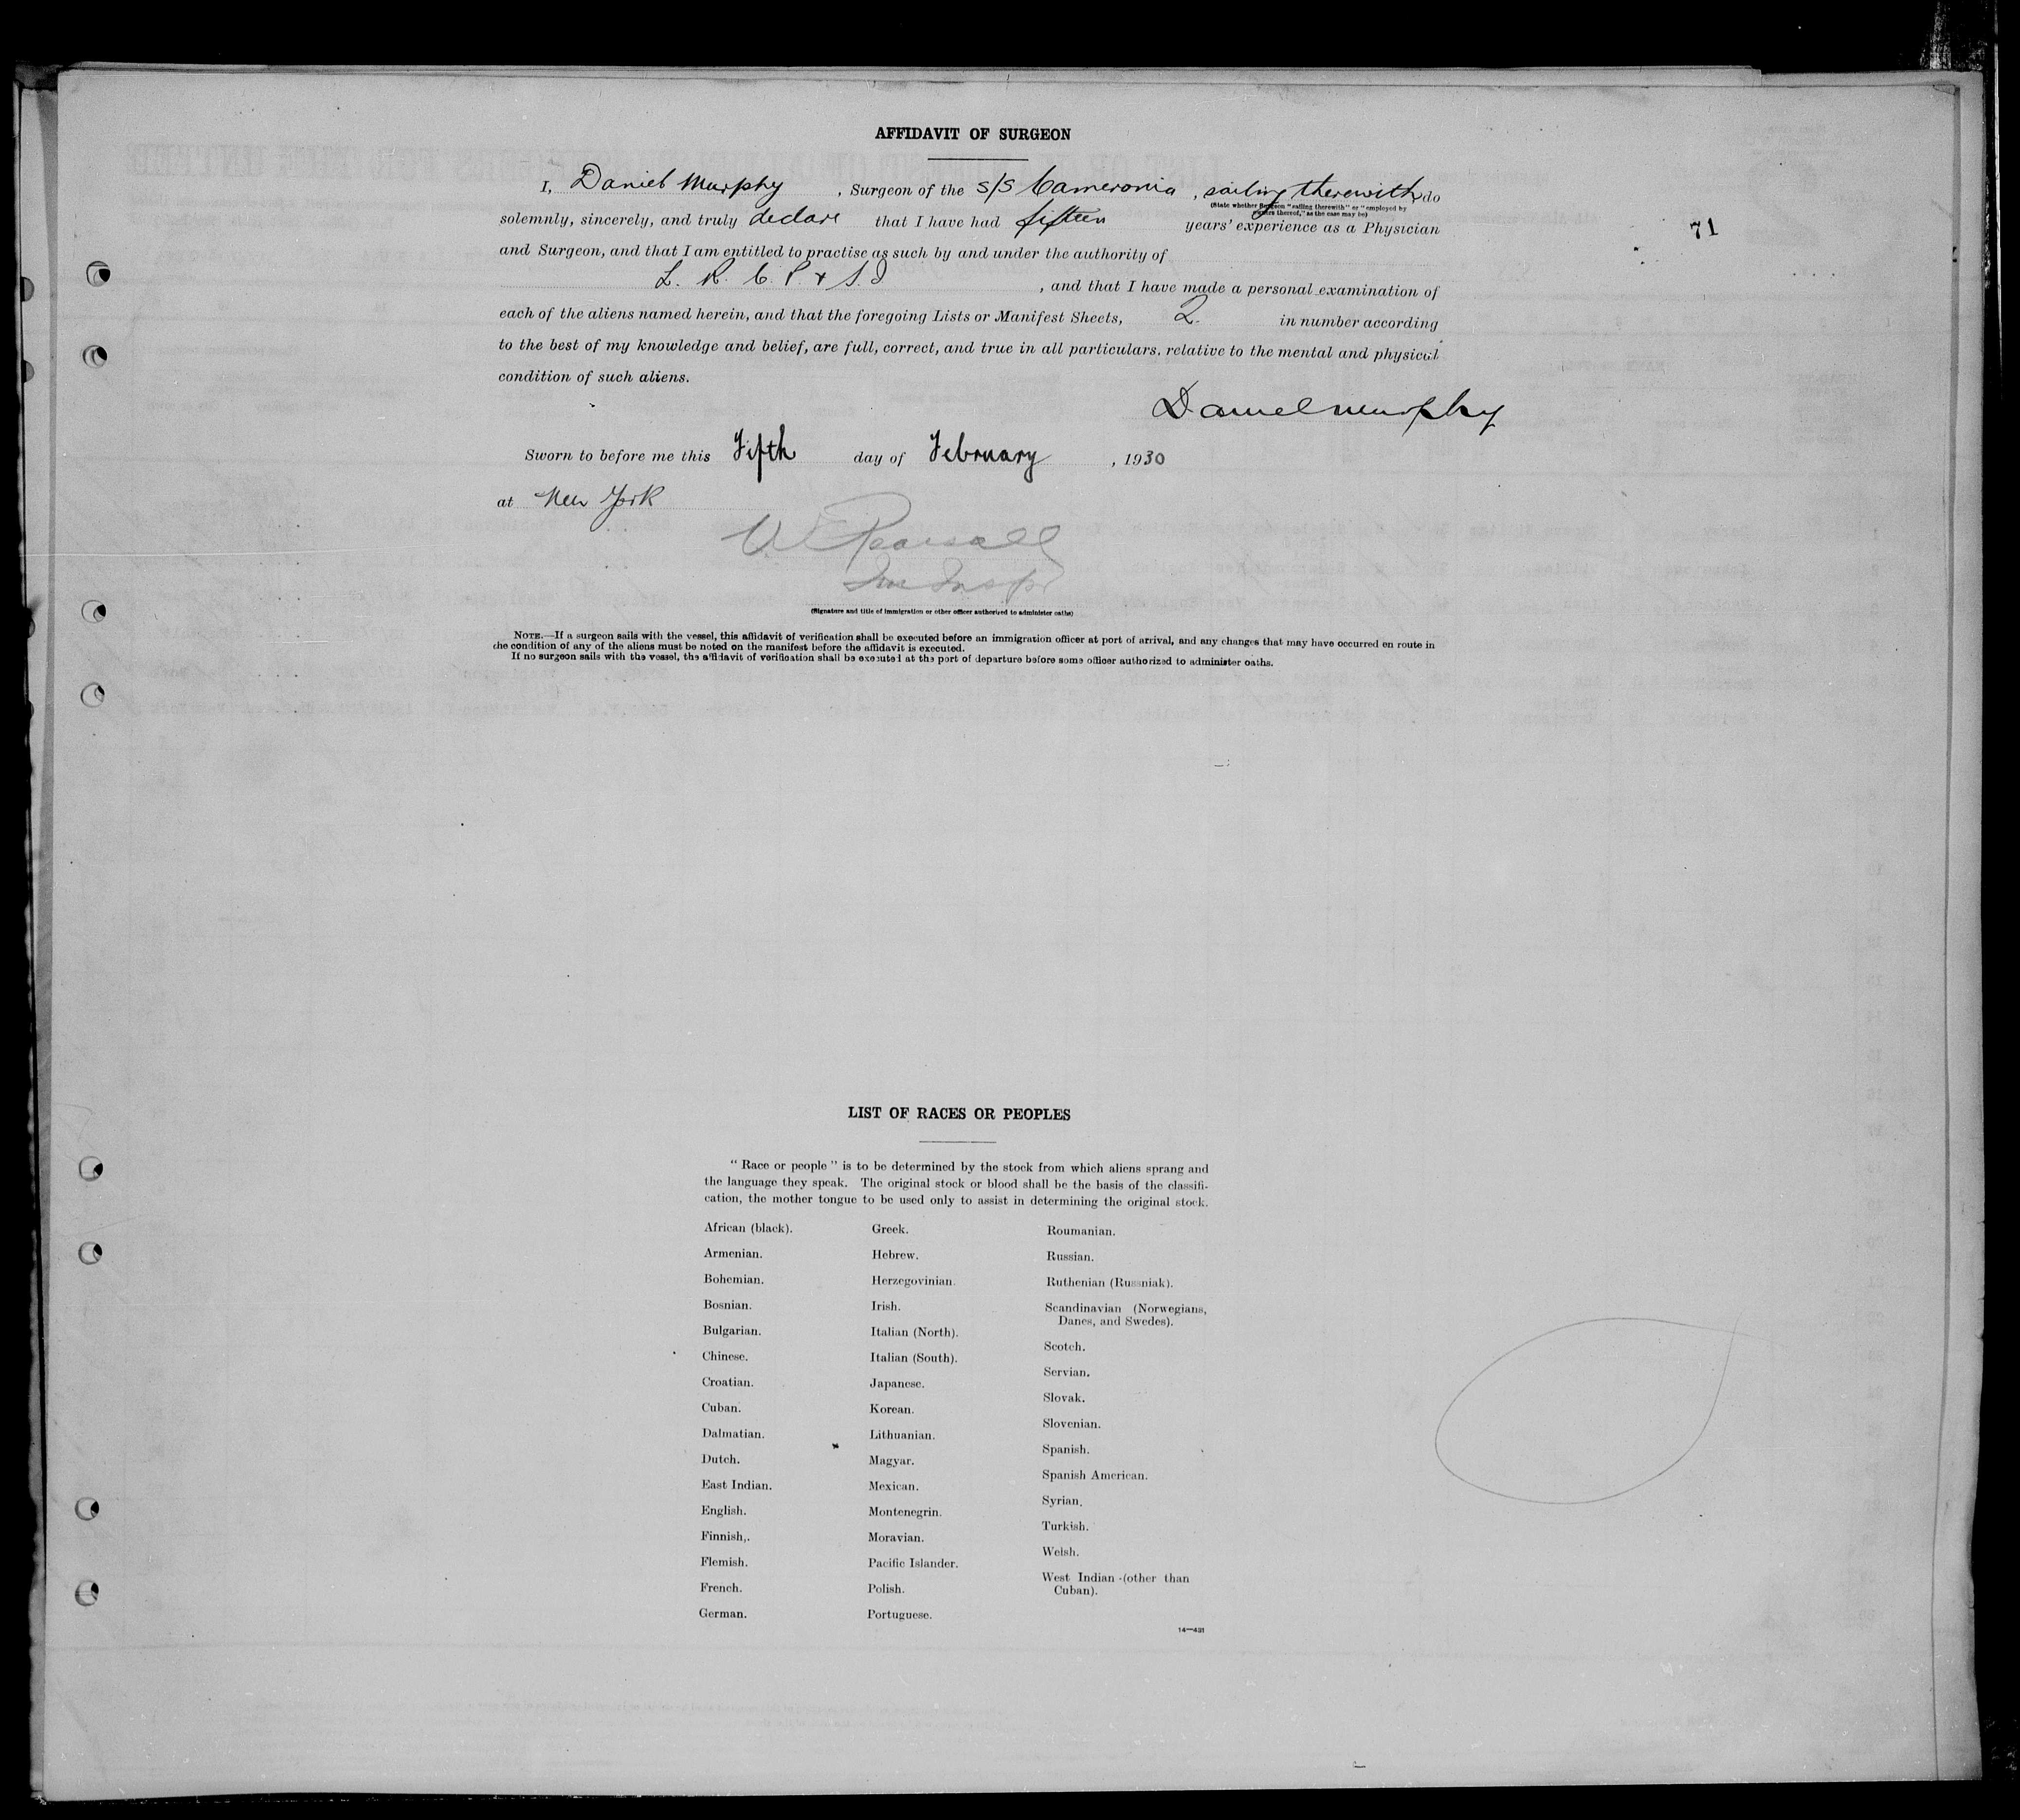 AFFIDAVIT OF SURGEON
I, Daniel Murphy , Surgeon of the S/S Cameronia , sailing therewith do
(State whether Surgeon "sailing therewith" or "employed by
owners thereof," as the case may be)
solemnly, sincerely, and truly declare that I have had fifteen years' experience as a Physician
71
and Surgeon, and that I am entitled to practise as such by and under the authority of
L. R. C. P. & S. I , and that I have made a personal examination of
each of the aliens named herein, and that the foregoing Lists or Manifest Sheets, 2. in number according
to the best of my knowledge and belief, are full, correct, and true in all particulars, relative to the mental and physical
condition of such aliens.
Daniel Murphy
Sworn to before me this Fifth day of February , 1930
at New York
Pearsall
Imm Insp
(Signature and title of immigration or other officer authorized to administer oaths)
NOTE.—If a surgeon sails with the vessel, this affidavit of verification shall be executed before an immigration officer at port of arrival, and any changes that may have occurred en route in
the condition of any of the aliens must be noted on the manifest before the affidavit is executed.
If no surgeon sails with the vessel, the affidavit of verification shall be executed at the port of departure before some officer authorized to administer oaths.
LIST OF RACES OR PEOPLES
" Race or people " is to be determined by the stock from which aliens sprang and
the language they speak. The original stock or blood shall be the basis of the classifi-
cation, the mother tongue to be used only to assist in determining the original stock.
African (black).
Armenian.
Bohemian.
Bosnian.
Bulgarian.
Chinese.
Croatian.
Cuban.
Dalmatian.
Dutch.
East Indian.
English.
Finnish.
Flemish.
French.
German.
Greek.
Hebrew.
Herzegovinian.
Irish.
Italian (North).
Italian (South).
Japanese.
Korean.
Lithuanian.
Magyar.
Mexican.
Montenegrin.
Moravian.
Pacific Islander.
Polish.
Portuguese.
Roumanian.
Russian.
Ruthenian (Russniak).
Scandinavian (Norwegians,
Danes, and Swedes).
Scotch.
Servian.
Slovak.
Slovenian.
Spanish.
Spanish American.
Syrian.
Turkish.
Welsh.
West Indian (other than
Cuban).
14—431